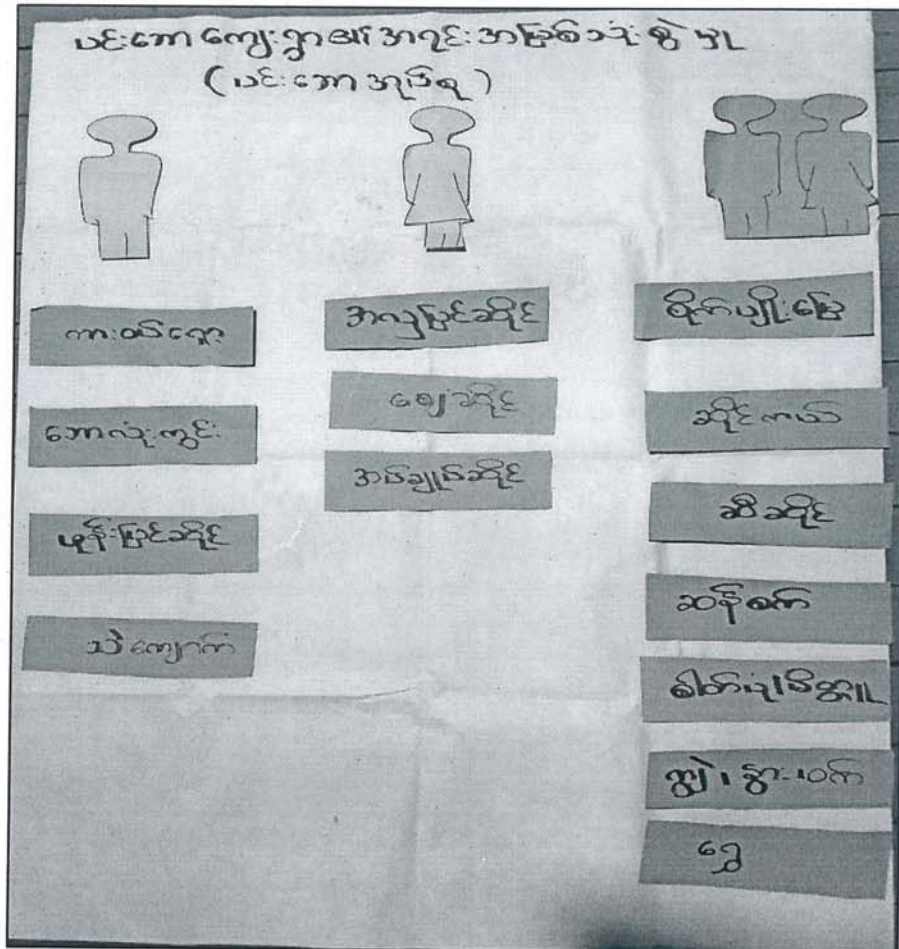 ပင်းဘော ကျေးရွာ၏ အရင်းအမြစ်သုံးစွဲမှု
(ပင်းဘော အုပ်စု)
ကားဝပ်ရှော့
ဘောလုံးကွင်း
ဖုန်းပြင်ဆိုင်
သဲကျောက်
အလှပြင်ဆိုင်
ဈေးဆိုင်
အပ်ချုပ်ဆိုင်
စိုက်ပျိုးမြေ
ဆိုင်ကယ်
ဆီဆိုင်
ဆန်စက်
ဓါတ်ပုံ၊ မိတ္တူ
ကျွဲ၊ နွား၊ ဝက်
ရွှေ